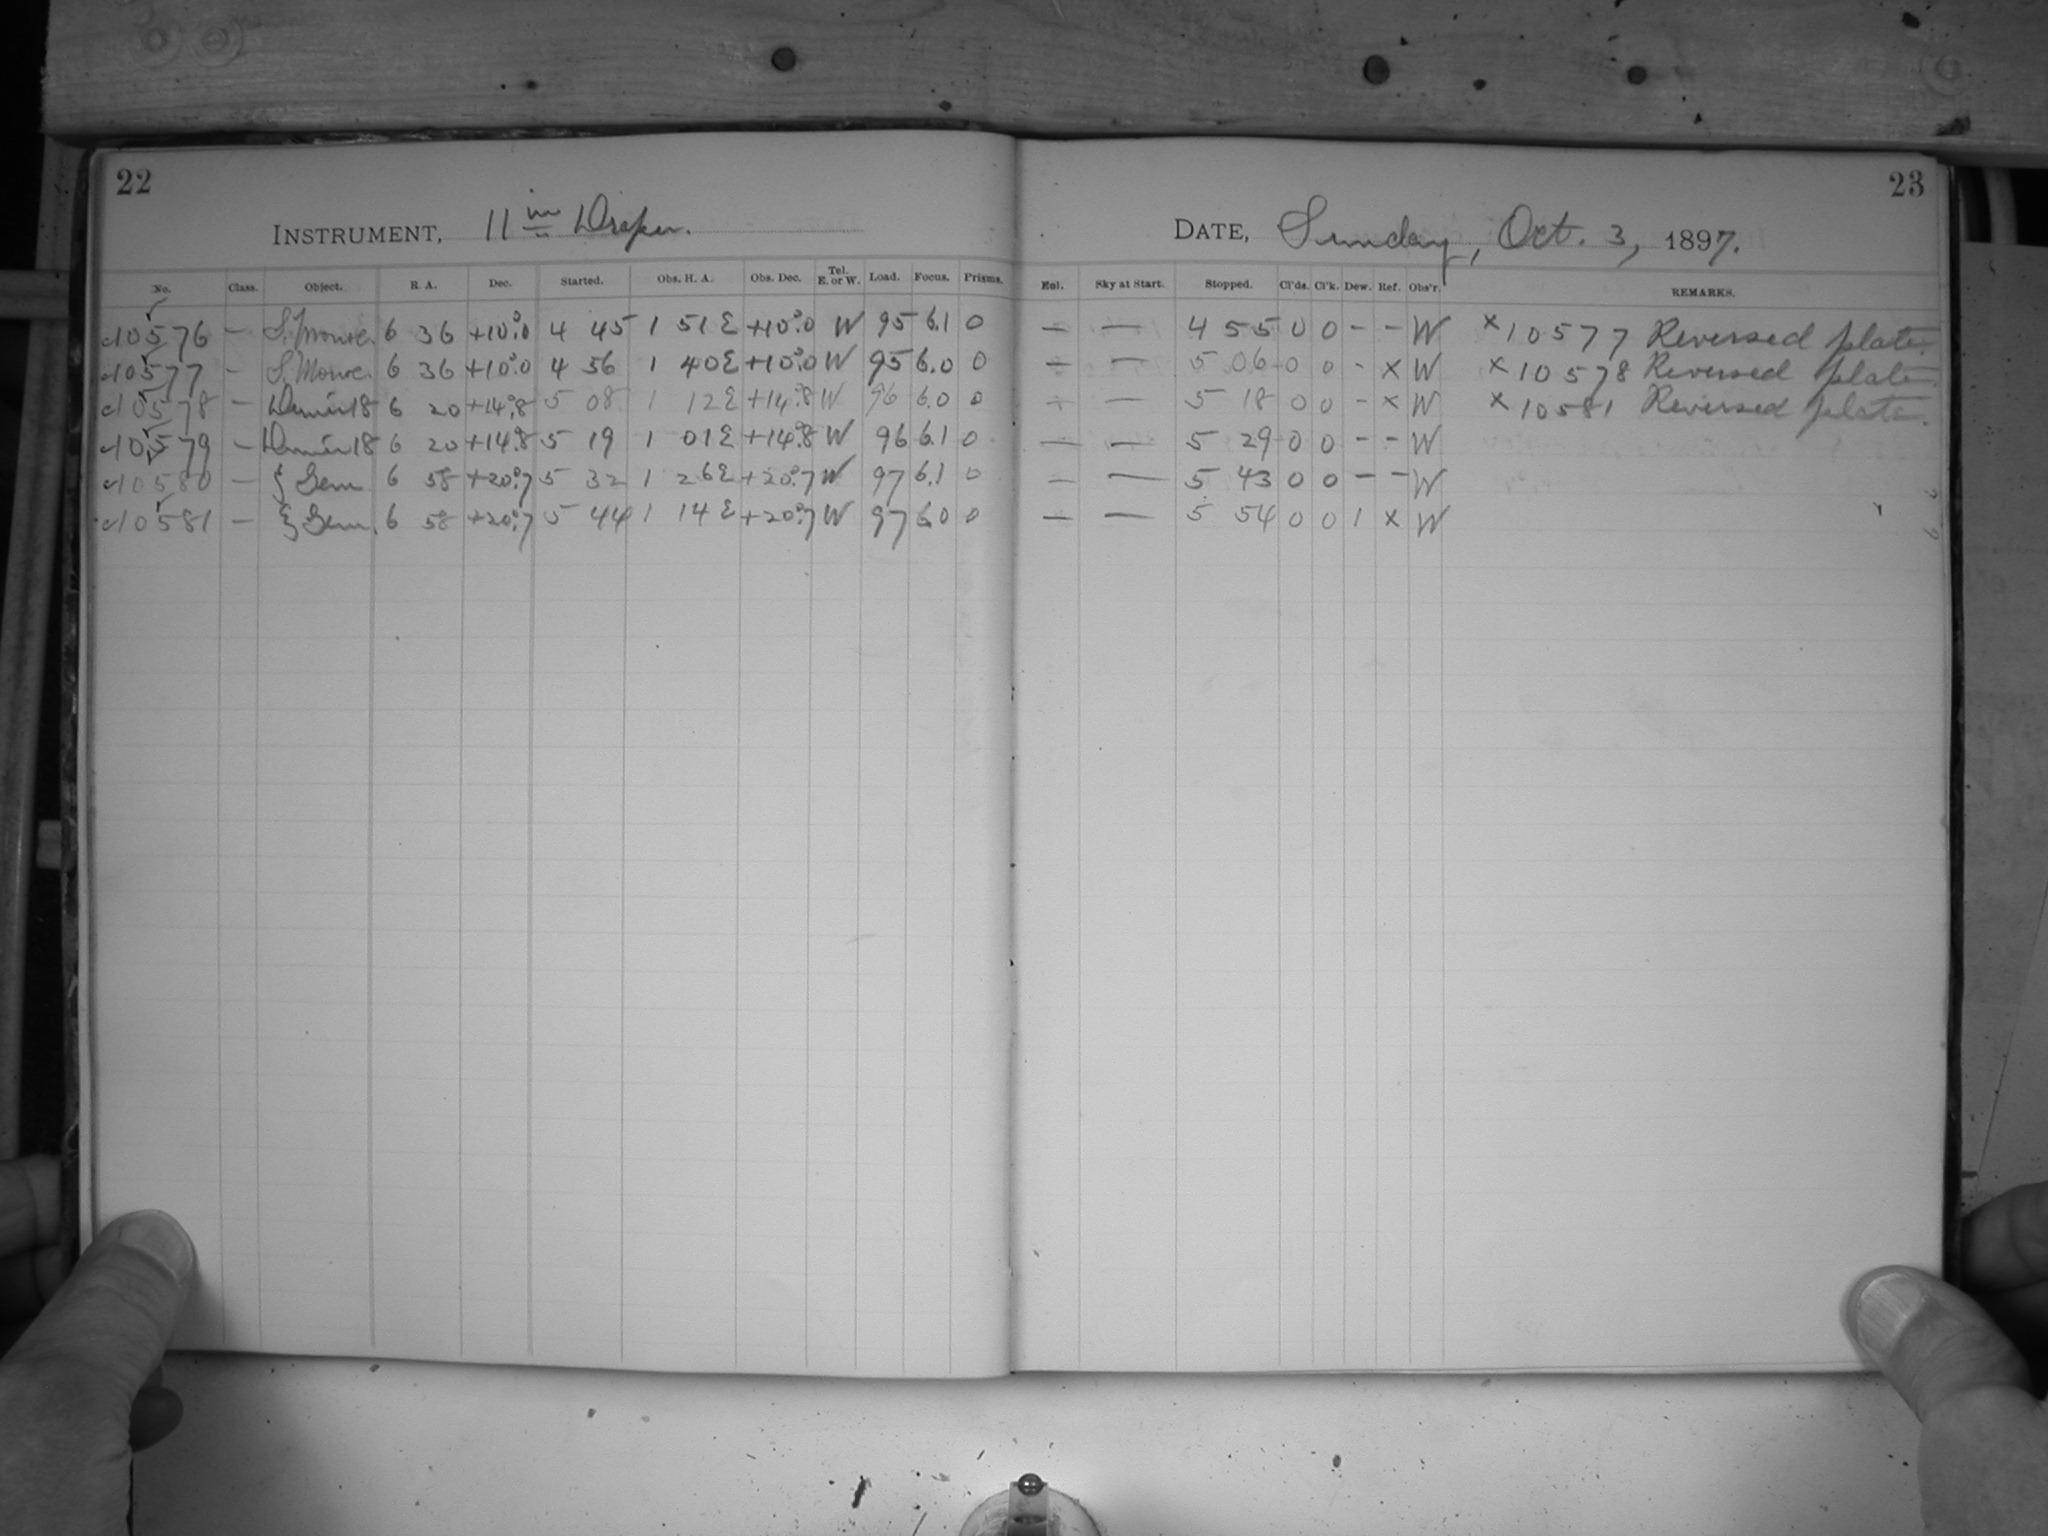 22
INSTRUMENT, 11 in Draper.
No. Class. Object. R. A. Dec. Started. Obs. H. A. Obs. Dec. Tel. E. or W. Load. Focus. Prisms.
c10576 — S. Monoc. 6 36 +10°.0 4 45 1 51E +10°.0 W 95 6.1 0
c10577 — S. Monoc. 6 36 +10°.0 4 56 1 40E +10°.0 W 95 6.0 0
c10578 — 18 6 20 +14°.8 5 08 1 12E +14°.8 W 96 6.0 0
c10579 — 18 6 20 +14°.8 5 19 1 01E +14°.8 W 96 6.1 0
c10580 — ζ Gem 6 58 +20°.7 5 32 1 26E +20°.7 W 97 6.1 0
c10581 — ζ Gem. 6 58 +20°.7 5 44 1 14E +20°.7 W 97 6.0 0
23
DATE, Sunday, Oct. 3, 1897.
Enl. Sky at Start. Stopped. Cl'ds. Cl'k. Dew. Ref. Obs'r. REMARKS.
— — 4 55 0 0 - - W x10577 Reversed plate.
— — 5 06 0 0 - x W x10578 Reversed plate
— — 5 18 0 0 - x W x10581 Reversed plate.
— — 5 29 0 0 - - W
— — 5 43 0 0 - - W
— — 5 54 0 0 1 x W